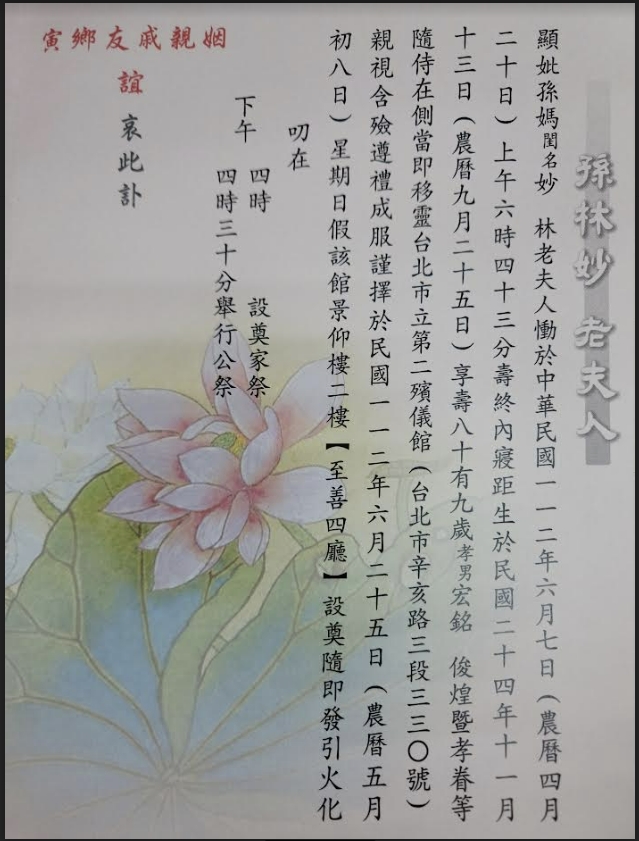 孫林妙 老夫人
顯妣孫媽閨名妙 林老夫人慟於中華民國一一二年六月七日（農曆四月
二十日）上午六時四十三分壽終內寢距生於民國二十四年十一月
十三日（農曆九月二十五日）享壽八十有九歲孝男宏銘 俊煌暨孝眷等
隨侍在側當即移靈台北市立第二殯儀館（台北市辛亥路三段三三〇號）
親視含殮遵禮成服謹擇於民國一一二年六月二十五日（農曆五月
初八日）星期日假該館景仰樓二樓【至善四廳】設奠隨即發引火化
叨在
下午 四時 設奠家祭
四時三十分舉行公祭
姻親戚友鄉寅
誼 哀此訃